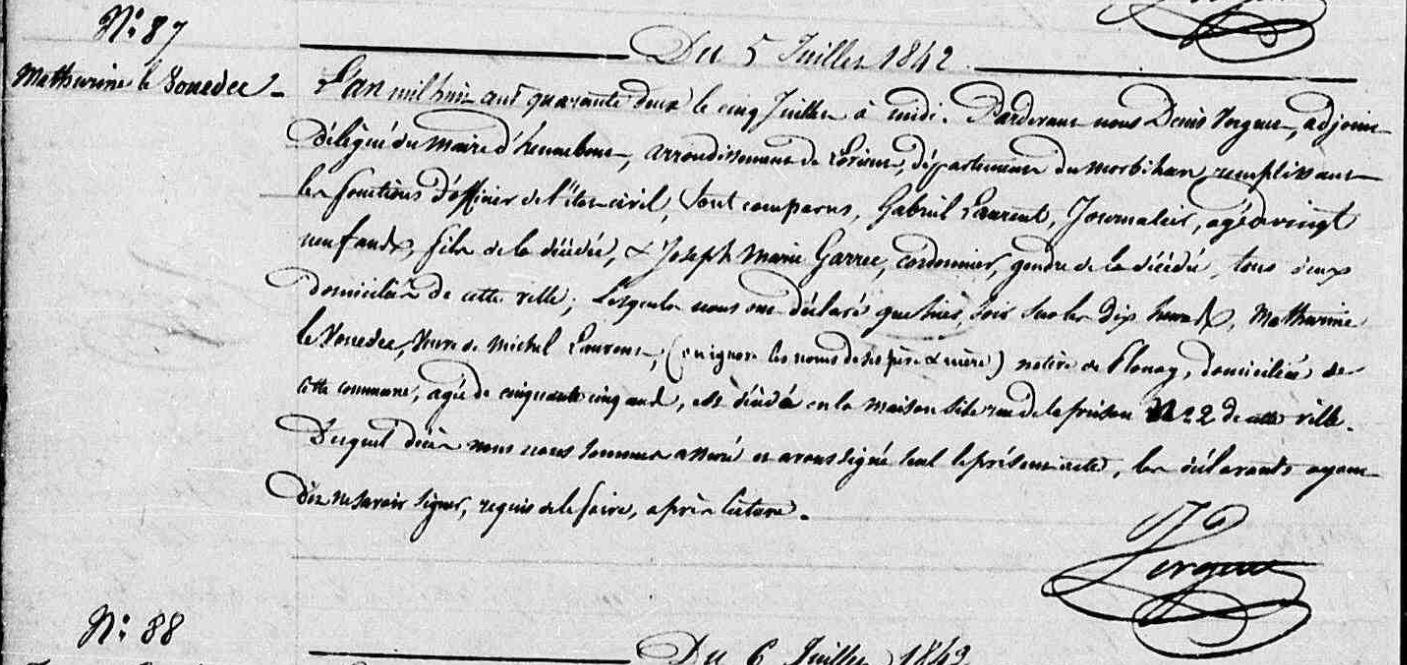 N.° 87
Du 5 Juillet 1842
Mathurine le Vouedec
L'an mil huit cent quarante deux le cinq Juillet à midi. Pardevant nous Denis Vergne, adjoint
délégué du Maire d'hennebont, arrondissement de Lorient, département du morbihan, remplissant
les fonctions d'officier de l'état civil, Sont comparus, Gabriel Laurent, Journalier, agé de vingt
neuf ans, fils de la décédée, & Joseph Marie Garrec, cordonnier, gendre de la décédée, tous deux
domiciliés de cette ville; Lesquels nous ont déclaré que hier soir sur les dix heures, Mathurine
le Vouedec, Veuve de Michel Laurent, (on ignore les noms de ses père & mère) native de Plouay, domiciliée de
cette commune, agée de cinquante cinq ans, est décédée en la maison sise rue de la prison N.° 22 de cette ville.
Duquel décès nous nous sommes assuré et avons signé seul le présent acte, les déclarants ayant
dit ne savoir signer, requis de le faire, après lecture.
Vergne
N.° 88
Du 6 Juillet 1842